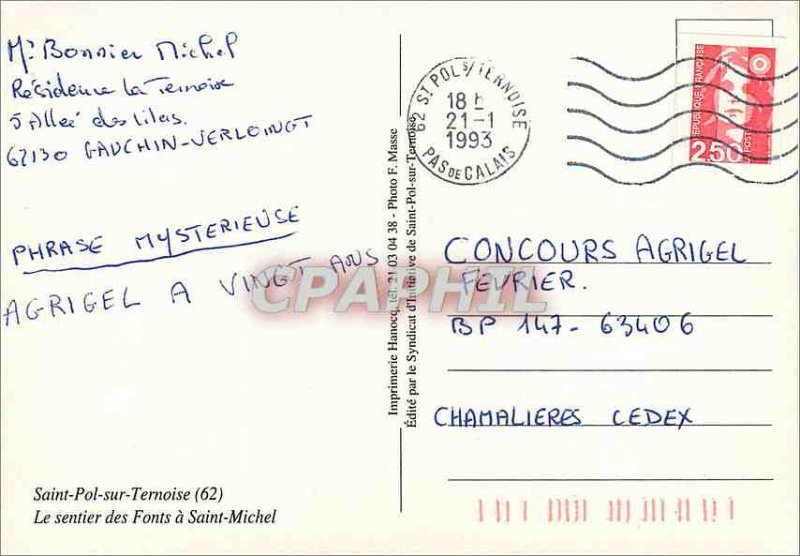 Mr Bonnier Michel
Résidence la Ternoise
5 Allée des lilas.
62130 GAUCHIN-VERLOINGT
PHRASE MYSTERIEUSE
AGRIGEL A VINGT ANS
Saint-Pol-sur-Ternoise (62)
Le sentier des Fonts à Saint-Michel
Imprimerie Hanocq, tél. 21 03 04 38 - Photo F. Masse
Édité par le Syndicat d'Initiative de Saint-Pol-sur-Ternoise
62 ST POL S/TERNOISE
18 H
21-1
1993
PAS DE CALAIS
REPUBLIQUE FRANÇAISE
2,50
POSTE
CONCOURS AGRIGEL
FÉVRIER.
BP 147- 63406
CHAMALIERES CEDEX
CPAPHIL